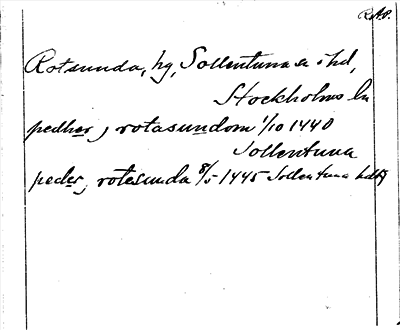 R.A.P.
Rotsunda, hg, Sollentuna s o hd,
Stockholms ln
pedher j rotasundom 1/10 1440
Sollentuna
peder j rotesunda 8/5 1445 Sollentuna hdbg